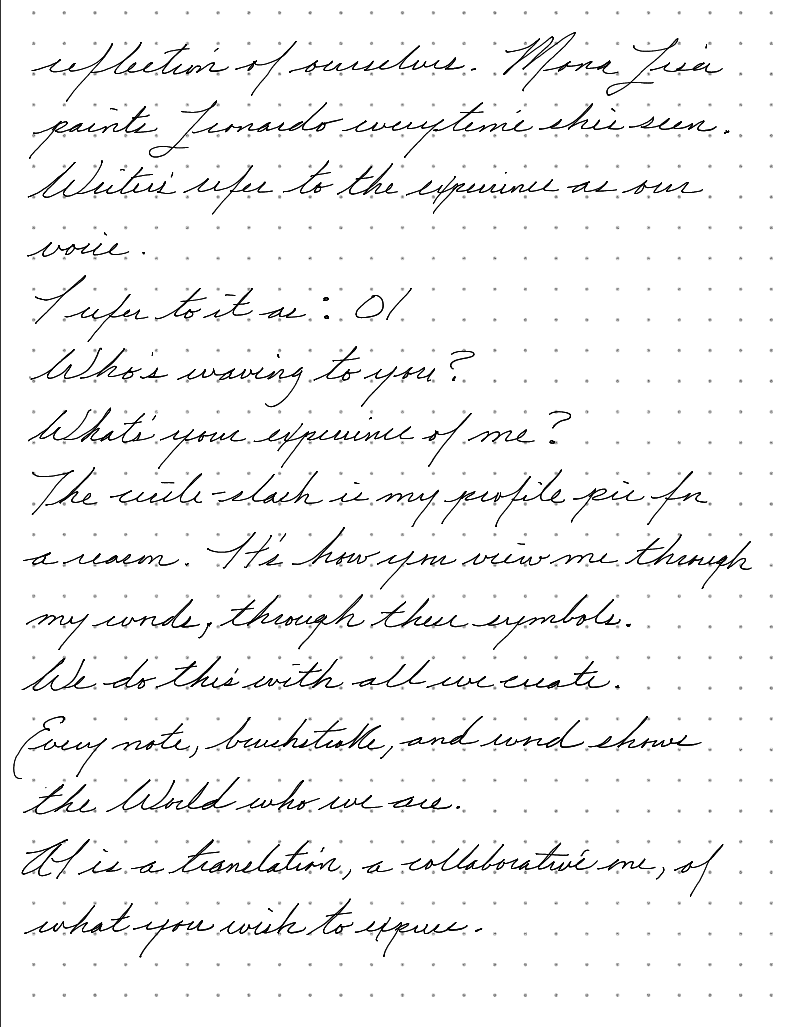 reflection of ourselves. Mona Lisa
paints Leonardo everytime she's seen.
Writers refer to the experience as our
voice.
I refer to it as: O/
Who's waving to you?
What's your experience of me?
The circle-slash is my profile pic for
a reason. It's how you view me through
my words, through these symbols.
We do this with all we create.
Every note, brushstroke, and word shows
the World who we are.
AI is a translation, a collaborative one, of
what you wish to express.